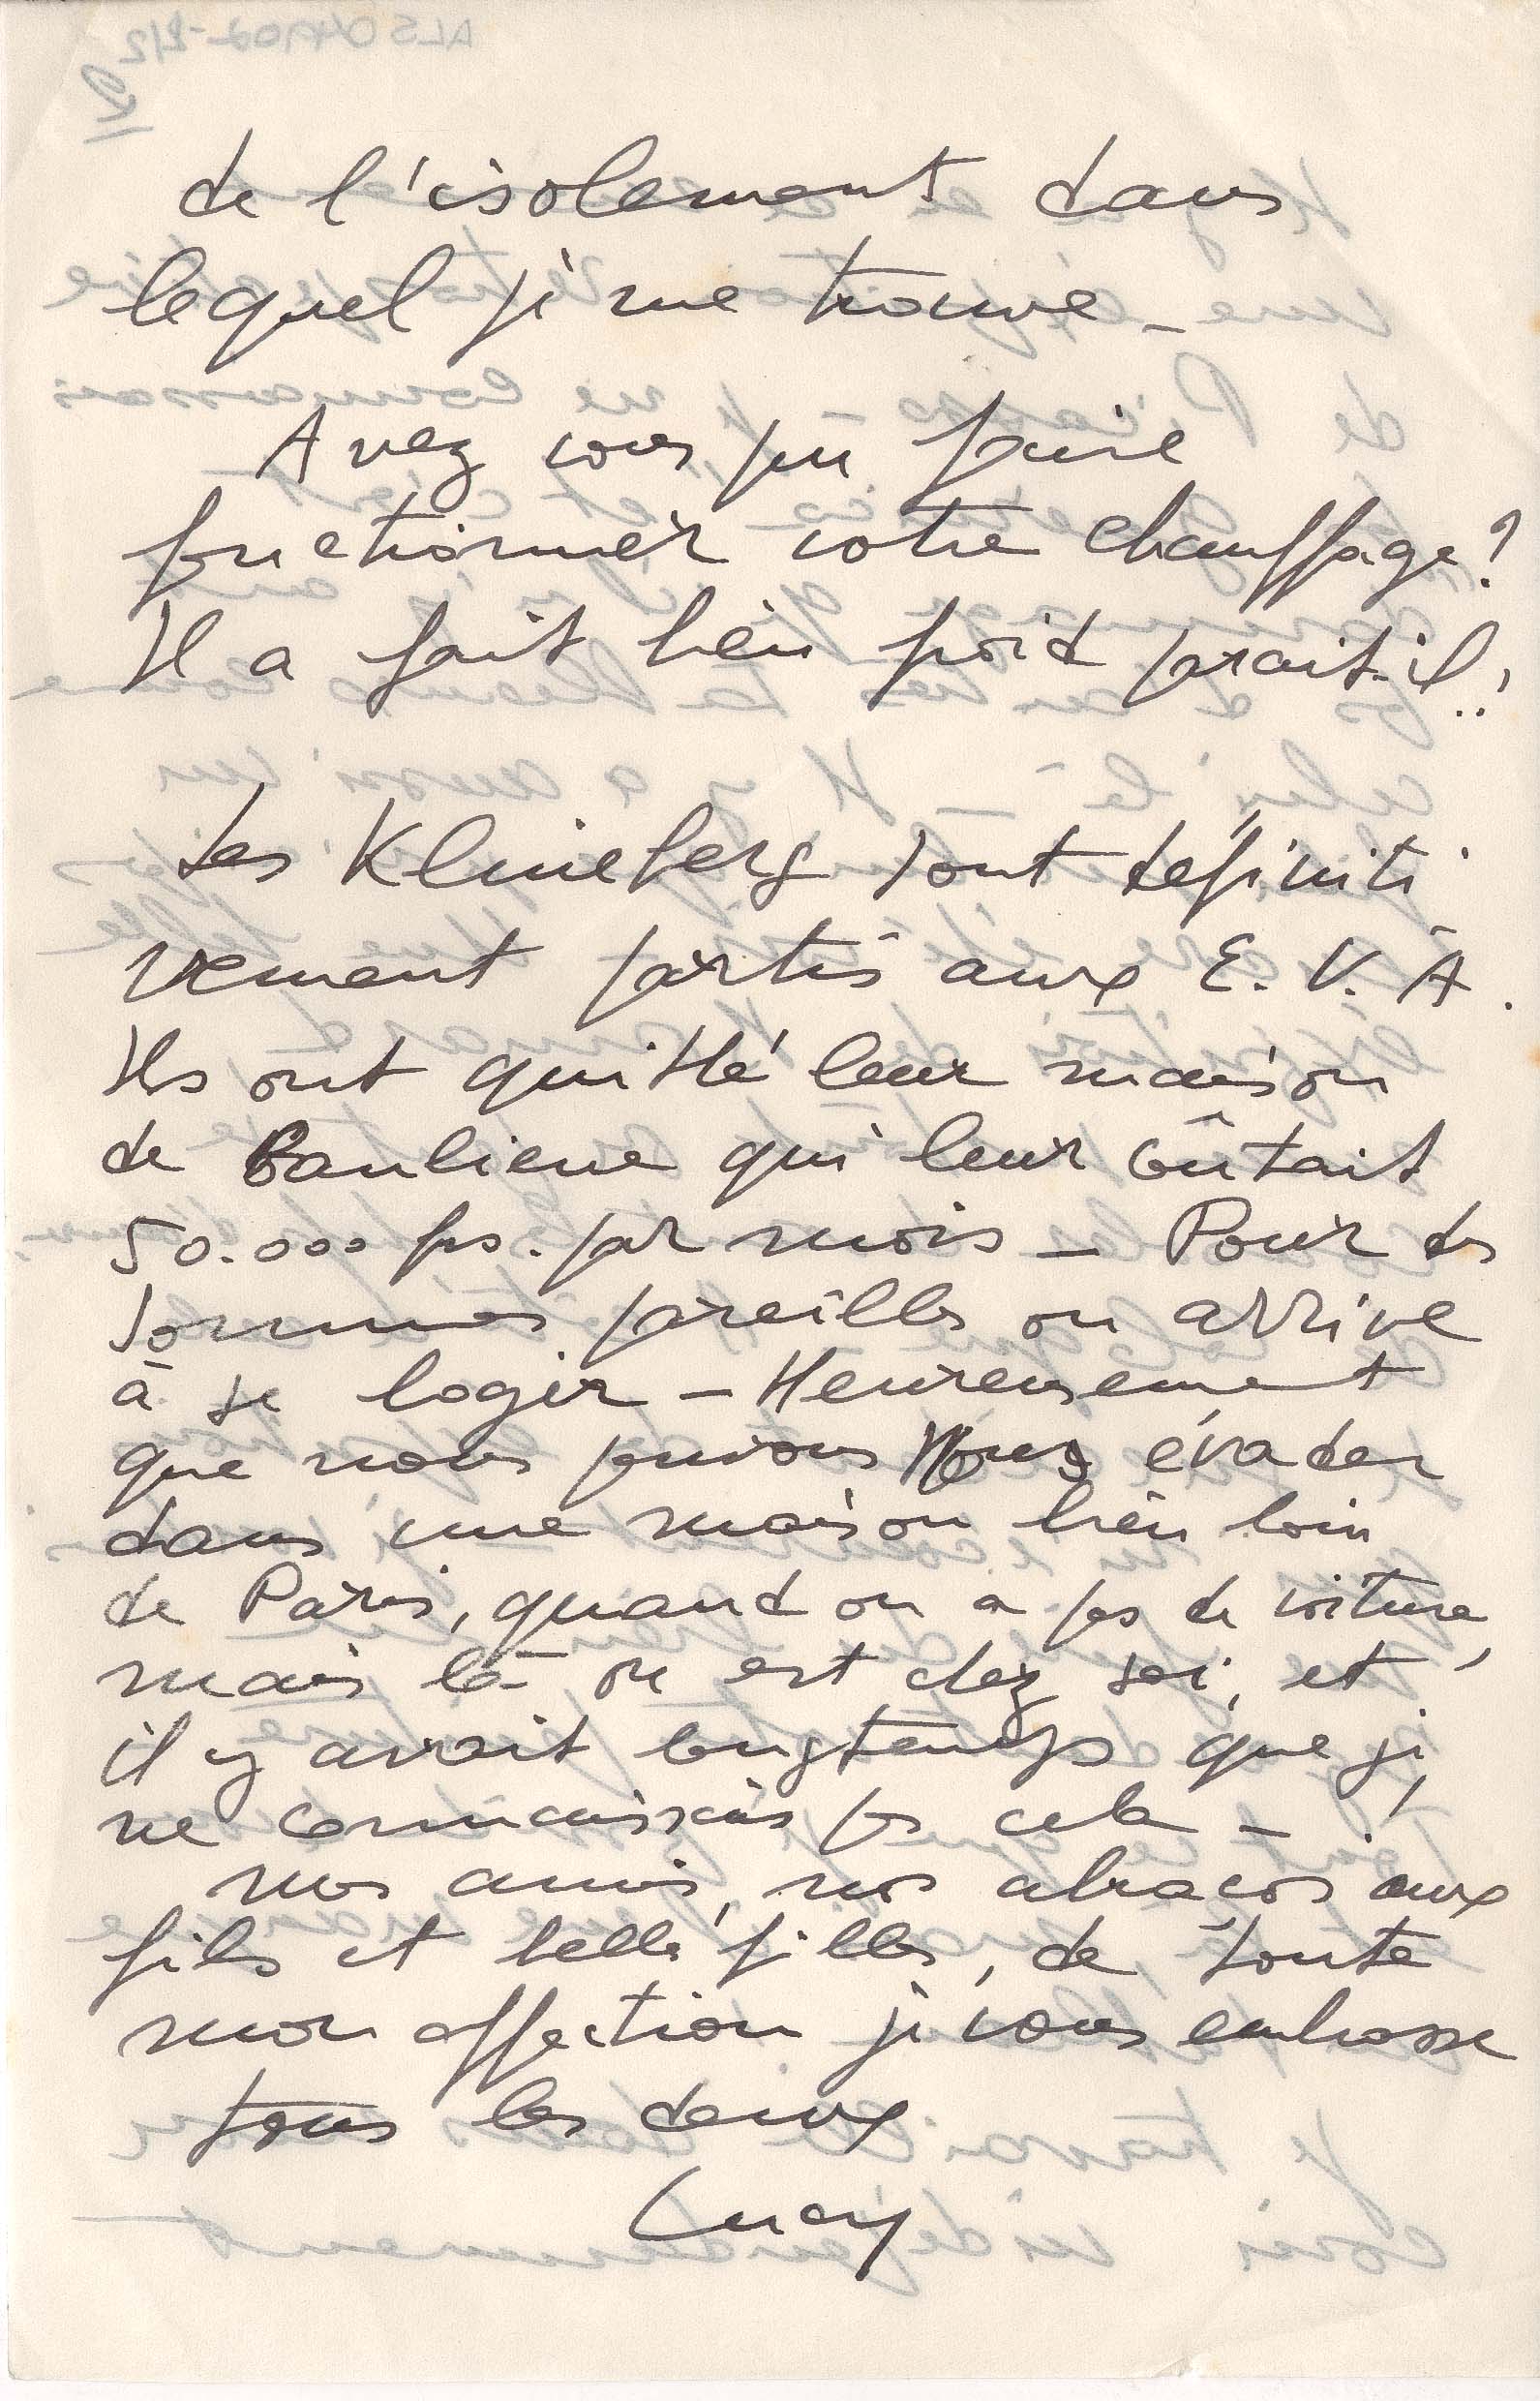 de l'isolement dans
lequel je me trouve _
Avez vous pu faire
fonctionner votre chauffage?
Il a fait bien froid parait-il!!
Les Klineberg sont définiti
vement partis aux E. U. A.
Ils ont quitté leur maison
de Banlieue qui leur coûtait
50.000 frs. par mois _ Pour des
sommes pareilles on arrive
à se loger _ Heureusement
que nous puvons nous évader
dans une maison bien loin
de Paris, quand on a pas de voiture,
mais là on est chez soi, et
il y avait longtemps que je
ne connaissais pas cela _!
nos amis, nos abraços aux
fils et belles filles, de toute
mon affection je vous embrasse
tous les deux
Lucy